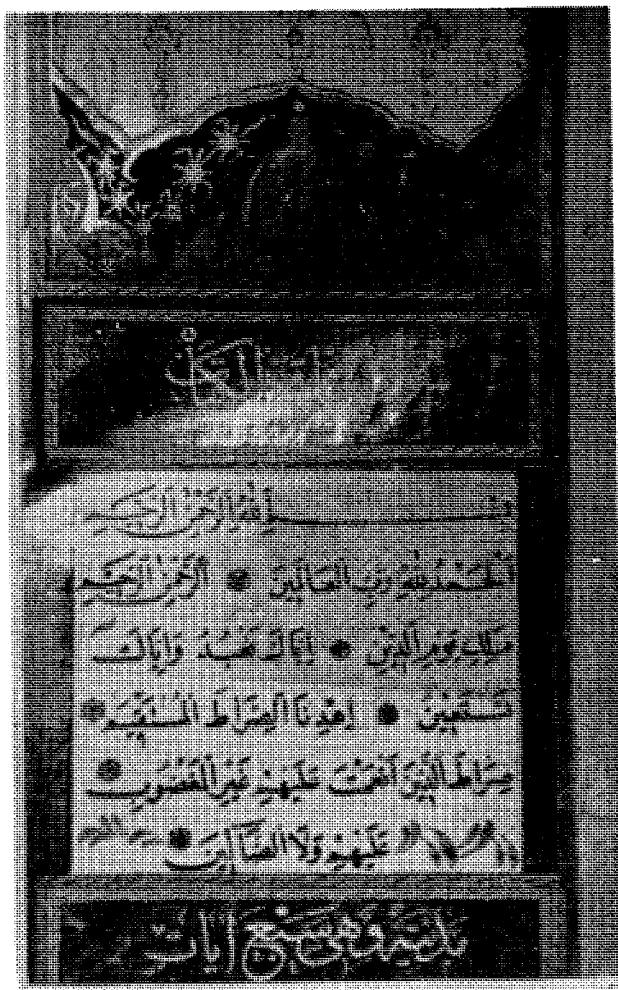 بِسْمِ اللهِ الرَّحْمٰنِ الرَّحِيمِ
اَلْحَمْدُ لِلهِ رَبِّ الْعَالَمِينَ اَلرَّحْمٰنِ الرَّحِيمِ
مٰلِكِ يَوْمِ الدِّينِ اِيَّاكَ نَعْبُدُ وَاِيَّاكَ
نَسْتَعِينُ اِهْدِنَا الصِّرَاطَ الْمُسْتَقِيمَ
صِرَاطَ الَّذِينَ اَنْعَمْتَ عَلَيْهِمْ غَيْرِ الْمَغْضُوبِ
عَلَيْهِمْ وَلَا الضَّالِّينَ
مدنية وهي سبع آيات